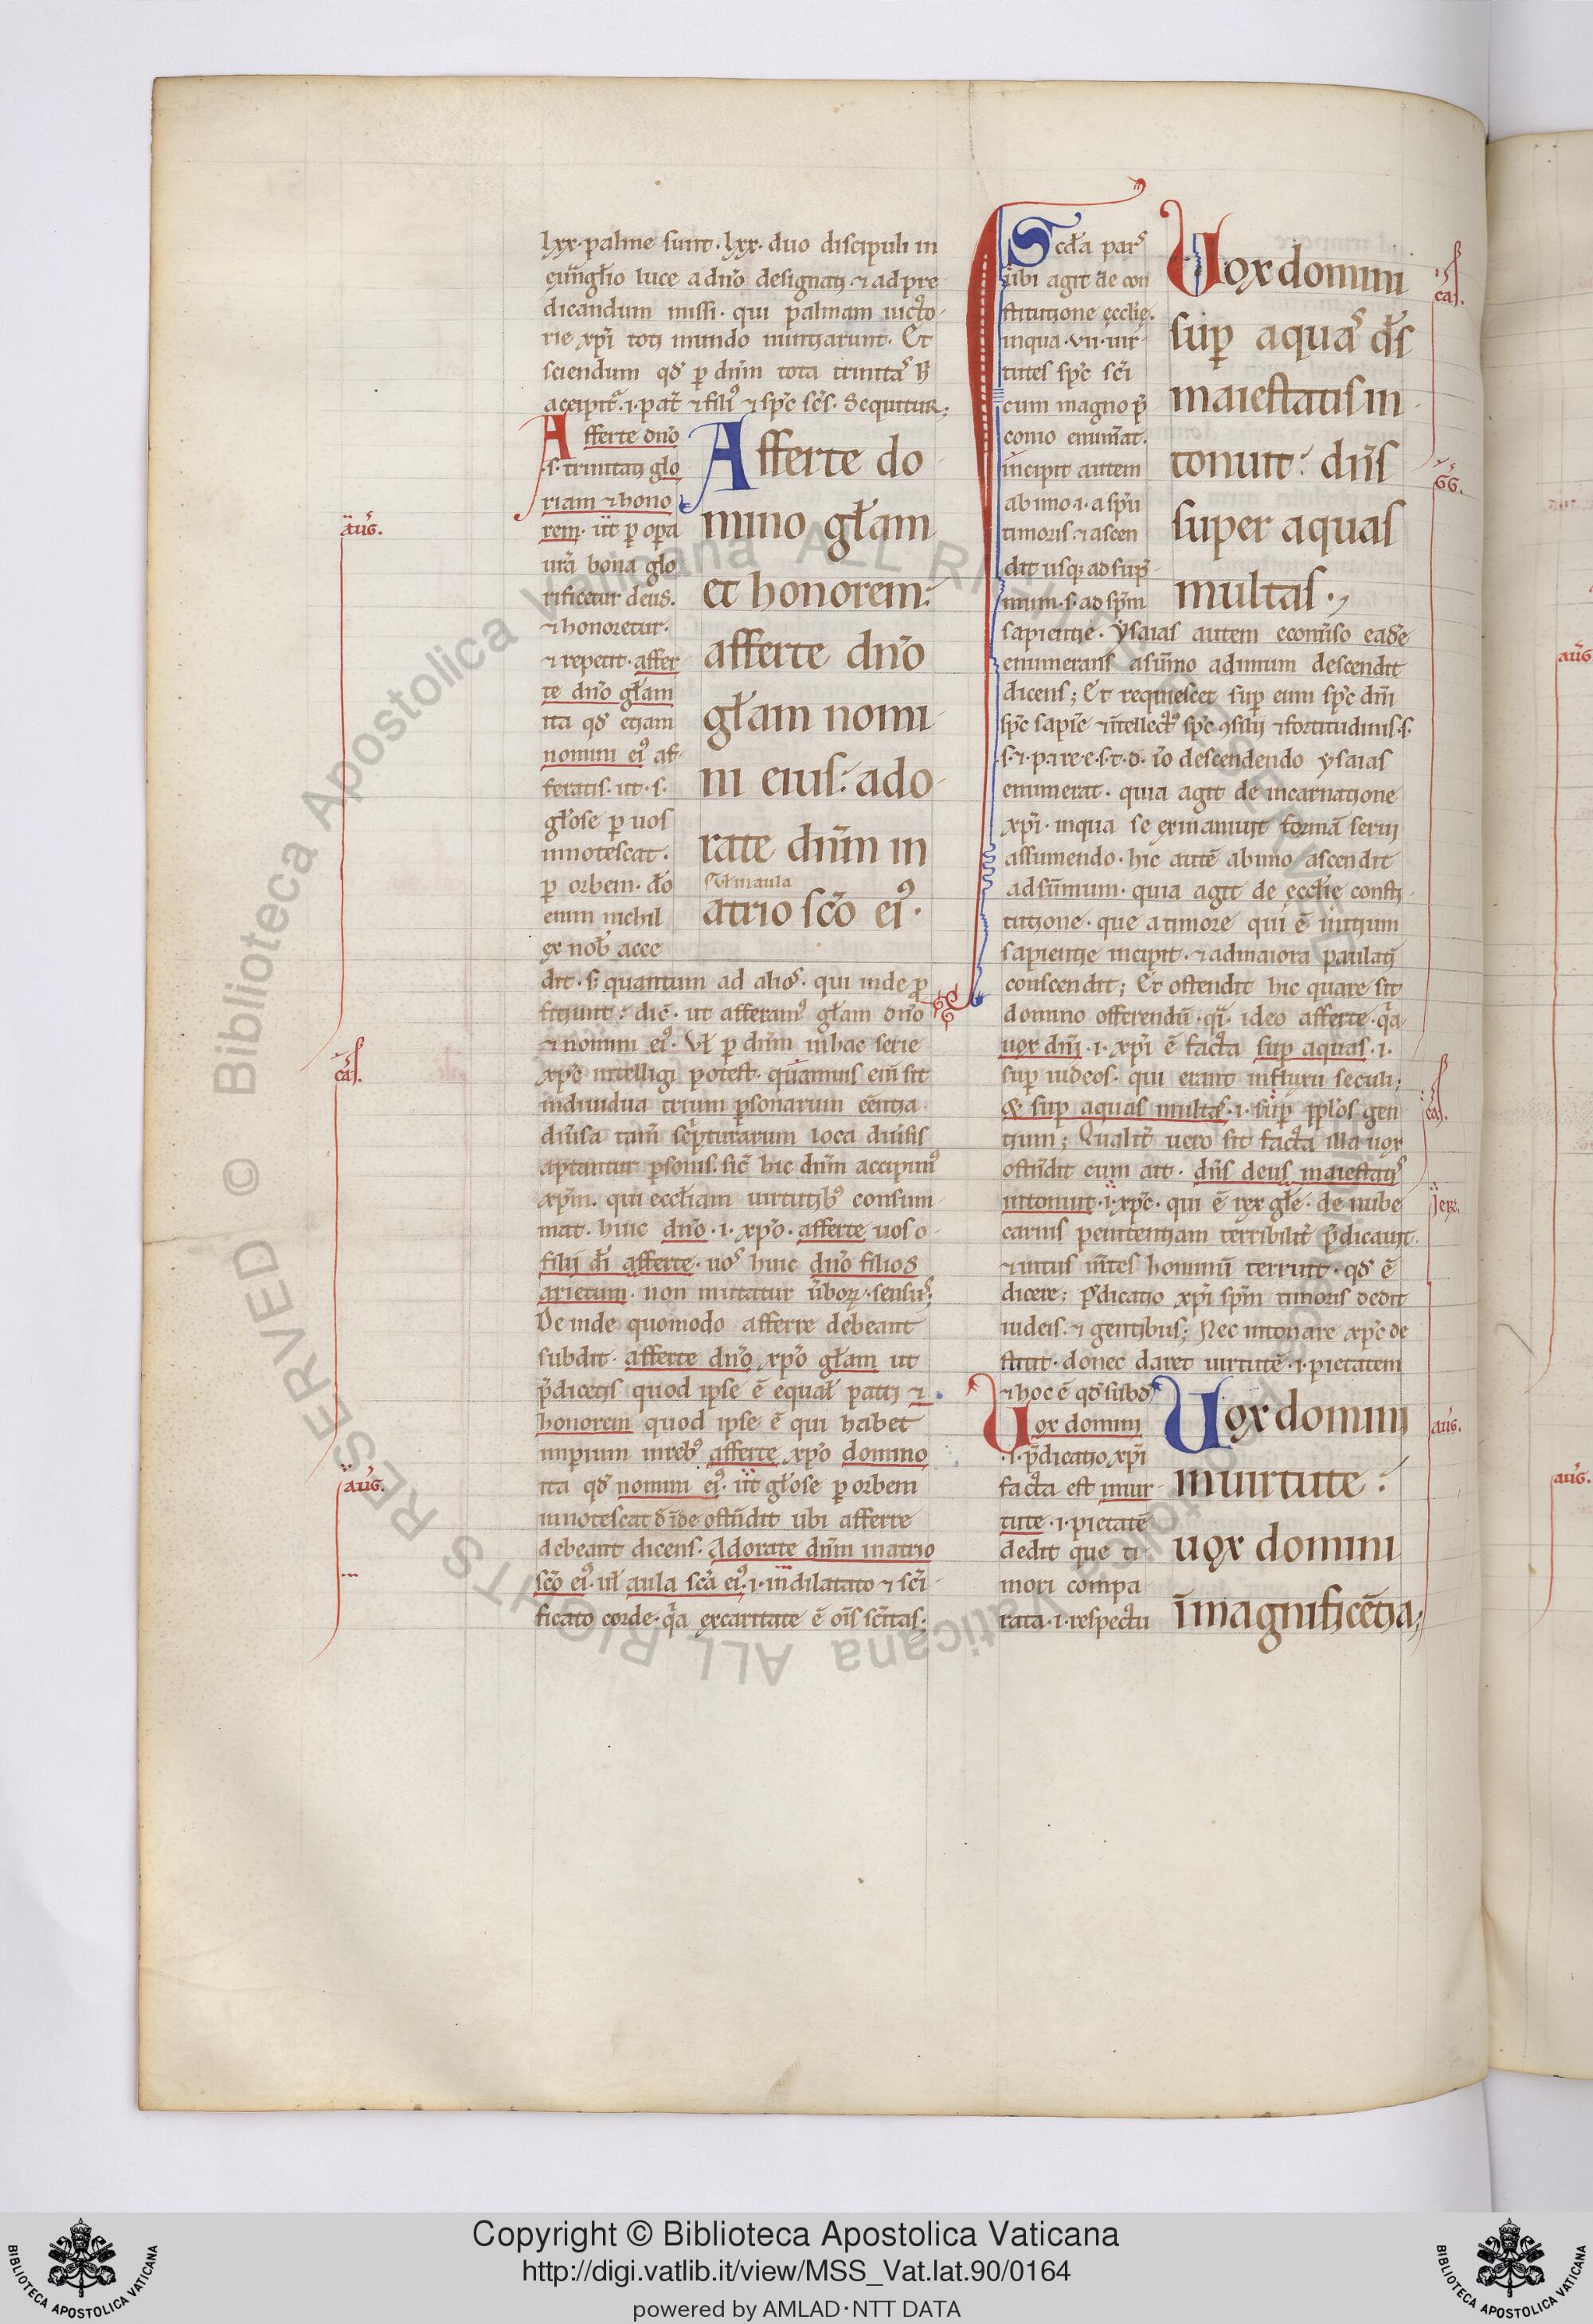 lxx. palme sunt. lxx. duo discipuli in
eu̅ng̅lio luce a dn̅o designati. ⁊ ad pre
dicandum missi. qui palmam uicto
rie xp̅i toti mundo nuntiarunt. Et
sciendum qd̅ p̲ dn̅m tota trinitas h̅
accipit̅. .i. pat̅ ⁊ filiꝰ ⁊ sp̅c sc̅s. Sequitur;
Afferte dn̅o
.s. trinitati glo
riam ⁊ hono
rem. ut p̲ op̲a
ur̅a bona glo
rificetur deus.
⁊ honoretur.
⁊ repetit. affer
te dn̅o gl̅am
ita qd̅ etiam
nomini eiꝰ af
feratis. ut .s.
gl̅ose p̲ uos
innotescat.
p̲ orbem. do̅
enim nichil
ex nob̅ acce
Afferte do
mino gl̅am
et honorem:
afferte dn̅o
gl̅am nomi
ni eius: ado
rate dn̅m in
ul̅ in aula
atrio sc̅o eiꝰ.
dit. s; quantum ad alios. qui inde p̲
ficiunt: dic̅. ut afferamꝰ gl̅am dn̅o
⁊ nomini eiꝰ. Vl̅ p̲ dn̅m in hac serie
xp̅c intelligi potest. quamuis eni̅ sit
indiuidua trium p̲sonarum ee̅ntia
diu̅sa tam̅ sc̅pturarum loca diu̅sis
aptantur p̲sonis. sic̅ hic dn̅m accipimꝰ
xp̅m. qui eccl̅iam uirtutibꝰ consum
mat. huic dn̅o .i. xp̅o. afferte uos o
filii di̅ afferte. uos huic dn̅o filios
arietum. non mittatur u̅boꝝ. sensus;
Deinde quomodo afferre debeant
subdit. afferte dn̅o xp̅o gl̅am ut
p̅dicetis quod ipse e̅ equal̅ patri ⁊
honorem quod ipse e̅ qui habet
imp̲ium in rebꝰ afferte xp̅o domino
ita qd̅ nomini eiꝰ. ut gl̅ose p̲ orbem
innotescat. d̅ in̅de oste̅dit ubi afferre
debeant dicens. Adorate dn̅m in atrio
sc̅o eiꝰ. ul̅ aula sc̅a eiꝰ. .i. in dilatato ⁊ sc̅i
ficato corde. q̅a ex caritate e̅ ois̅ sc̅itas;
Scd̅a pars
ubi agit de con
stitutione eccl̅ie.
in qua .vii. uir
tutes sp̅c sc̅i
cum magno p̅
conio enum̅at.
incipit autem
ab imo .i. a sp̅u
timoris. ⁊ ascen
dit usq; ad sup̅
mum .s. ad sp̅m
Uox domini
sup̲ aquas d̅s
maiestatis in
tonuit: dn̅s
super aquas
multas.
sapientie. ysaias autem econu̅so eade̅
enumerans a su̅mo ad imum descendit
dicens; Et requiescet sup̲ eum sp̅c dn̅i
sp̅c sapie̅ ⁊ i̅ntellectꝰ sp̅c ꝯsilii ⁊ fortitudinis .s.
.s. ⁊ p. ⁊ re. e. s. t. d. io̅ descendendo ysaias
enumerat. quia agit de incarnatione
xp̅i. in qua se exinaniuit forma̅ serui
assumendo. hic aute̅ ab imo ascendit
ad su̅mum. quia agit de eccl̅ie consti
tutione. que a timore qui e̅ initium
sapientie incipit. ⁊ ad maiora paulati̅
conscendit; Et ostendit hic quare sit
domino offerendu̅. q̅i. ideo afferte. q̅a
uox dn̅i .i. xp̅i e̅ facta sup̲ aquas .i.
sup̲ iudeos. qui erant in fluxu seculi;
⁊ sup̲ aquas multas .i. sup̲ pp̅los gen
tium; Qualit̅ uero sit facta illa uox
oste̅dit cum ait. dn̅s deus maiestatis
intonuit .i. xp̅c. qui e̅ rex gl̅e. de nube
carnis penitentiam terribilit̅ p̅dicauit.
⁊ intus me̅tes hominu̅ terruit. qd̅ e̅
dicere; p̅dicatio xp̅i sp̅m timoris dedit
iudeis. ⁊ gentibus; Nec intonare xp̅c de
stitit. donec daret uirtute̅ .i. pietatem
⁊ hoc e̅ qd̅ subd̅
Uox domini
.i. p̅dicatio xp̅i
facta est in uir
tute .i. pietate̅
dedit que ti
mori compa
rata .i. respectu
Uox domini
in uirtute:
uox domini
i̅ magnifice̅tia;
aug̅.
cas̅.
aug̅.
cas̅.
GG̅.
cas̅.
Ier̅.
aug̅.
aug̅
aug̅.
© Biblioteca Apostolica Vaticana ALL RIGHTS RESERVED
Copyright © Biblioteca Apostolica Vaticana
http://digi.vatlib.it/view/MSS_Vat.lat.90/0164
powered by AMLAD·NTT DATA
BIBLIOTECA APOSTOLICA VATICANA
BIBLIOTECA APOSTOLICA VATICANA